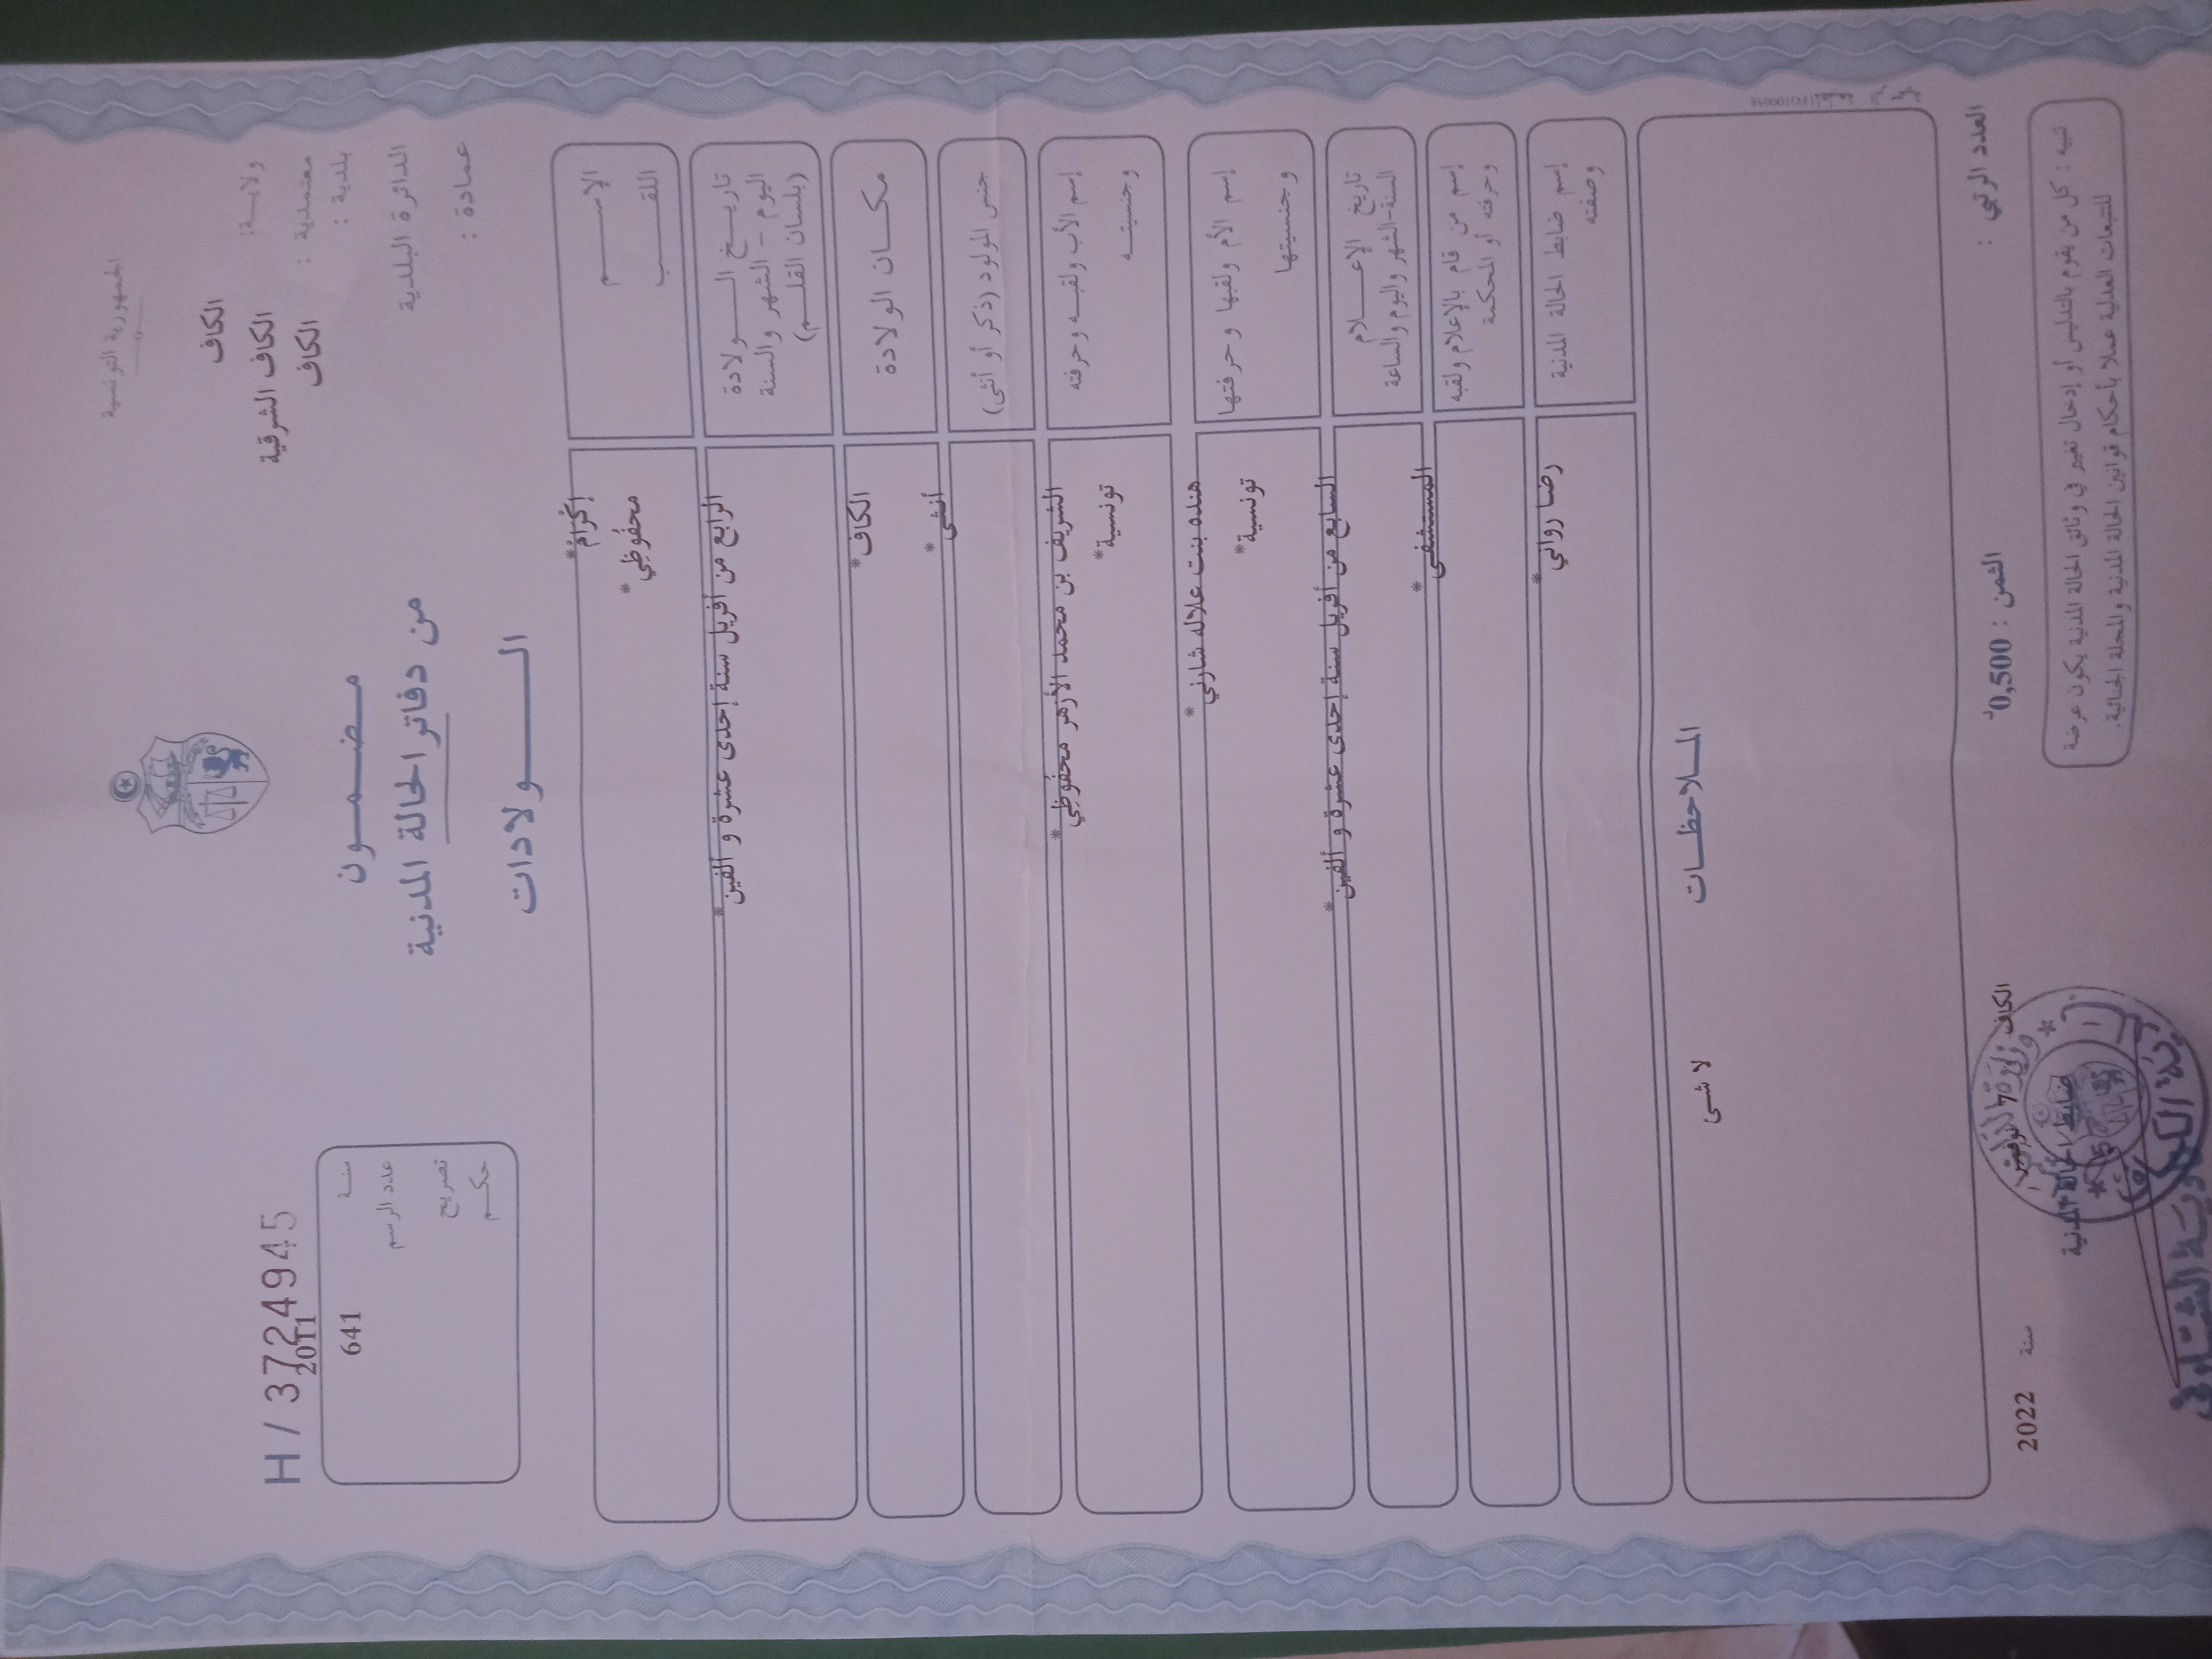 الجمهورية التونسية
ولايـــة:
الكاف
معتمدية :
الكاف الشرقية
بلدية :
الكاف
الدائرة البلدية
عمادة :
مـضـمـون
من دفاتر الحالة المدنية
الـــولادات
H / 3724945
سنة
2011
عدد الرسم
641
تصريح
حكـم
الإســـم
اللقـــب
إكْرَامْ*
محفُوظِي *
تاريــخ الـــولادة
اليوم - الشهر والسنة
(بلسان القلـم)
الرابع من أفريل سنة إحدى عشرة و ألفين *
مكــان الولادة
الكاف*
جنس المولود (ذكر أو أنثى)
أنثى *
إسم الأب ولقبـه وحرفته
وجنسيتـه
الشريف بن محمد الأزهر محفُوظِي *
تونسية*
إسم الأم ولقبها وحرفتها
وجنسيتها
هنده بنت علاله شارني *
تونسية*
تاريخ الإعــلام
السنة-الشهر واليوم والساعة
السابع من أفريل سنة إحدى عشرة و ألفين *
إسم من قام بالإعلام ولقبه
وحرفته أو المحكمة
المستشفى *
إسم ضابط الحالة المدنية
وصفته
رضا رواني *
الملاحظـات
لا شـى
العدد الرتبي :
الثمن : 0,500د
الكاف
7 نوفمبر
سنة
2022
ضابط الحالة المدنية
تنبيه : كل من يقوم بالتدليس أو إدخال تغيير في وثائق الحالة المدنية يكون عرضة
للتتبعات العدلية عملا بأحكام قوانين الحالة المدنية والمجلة الجنائية.